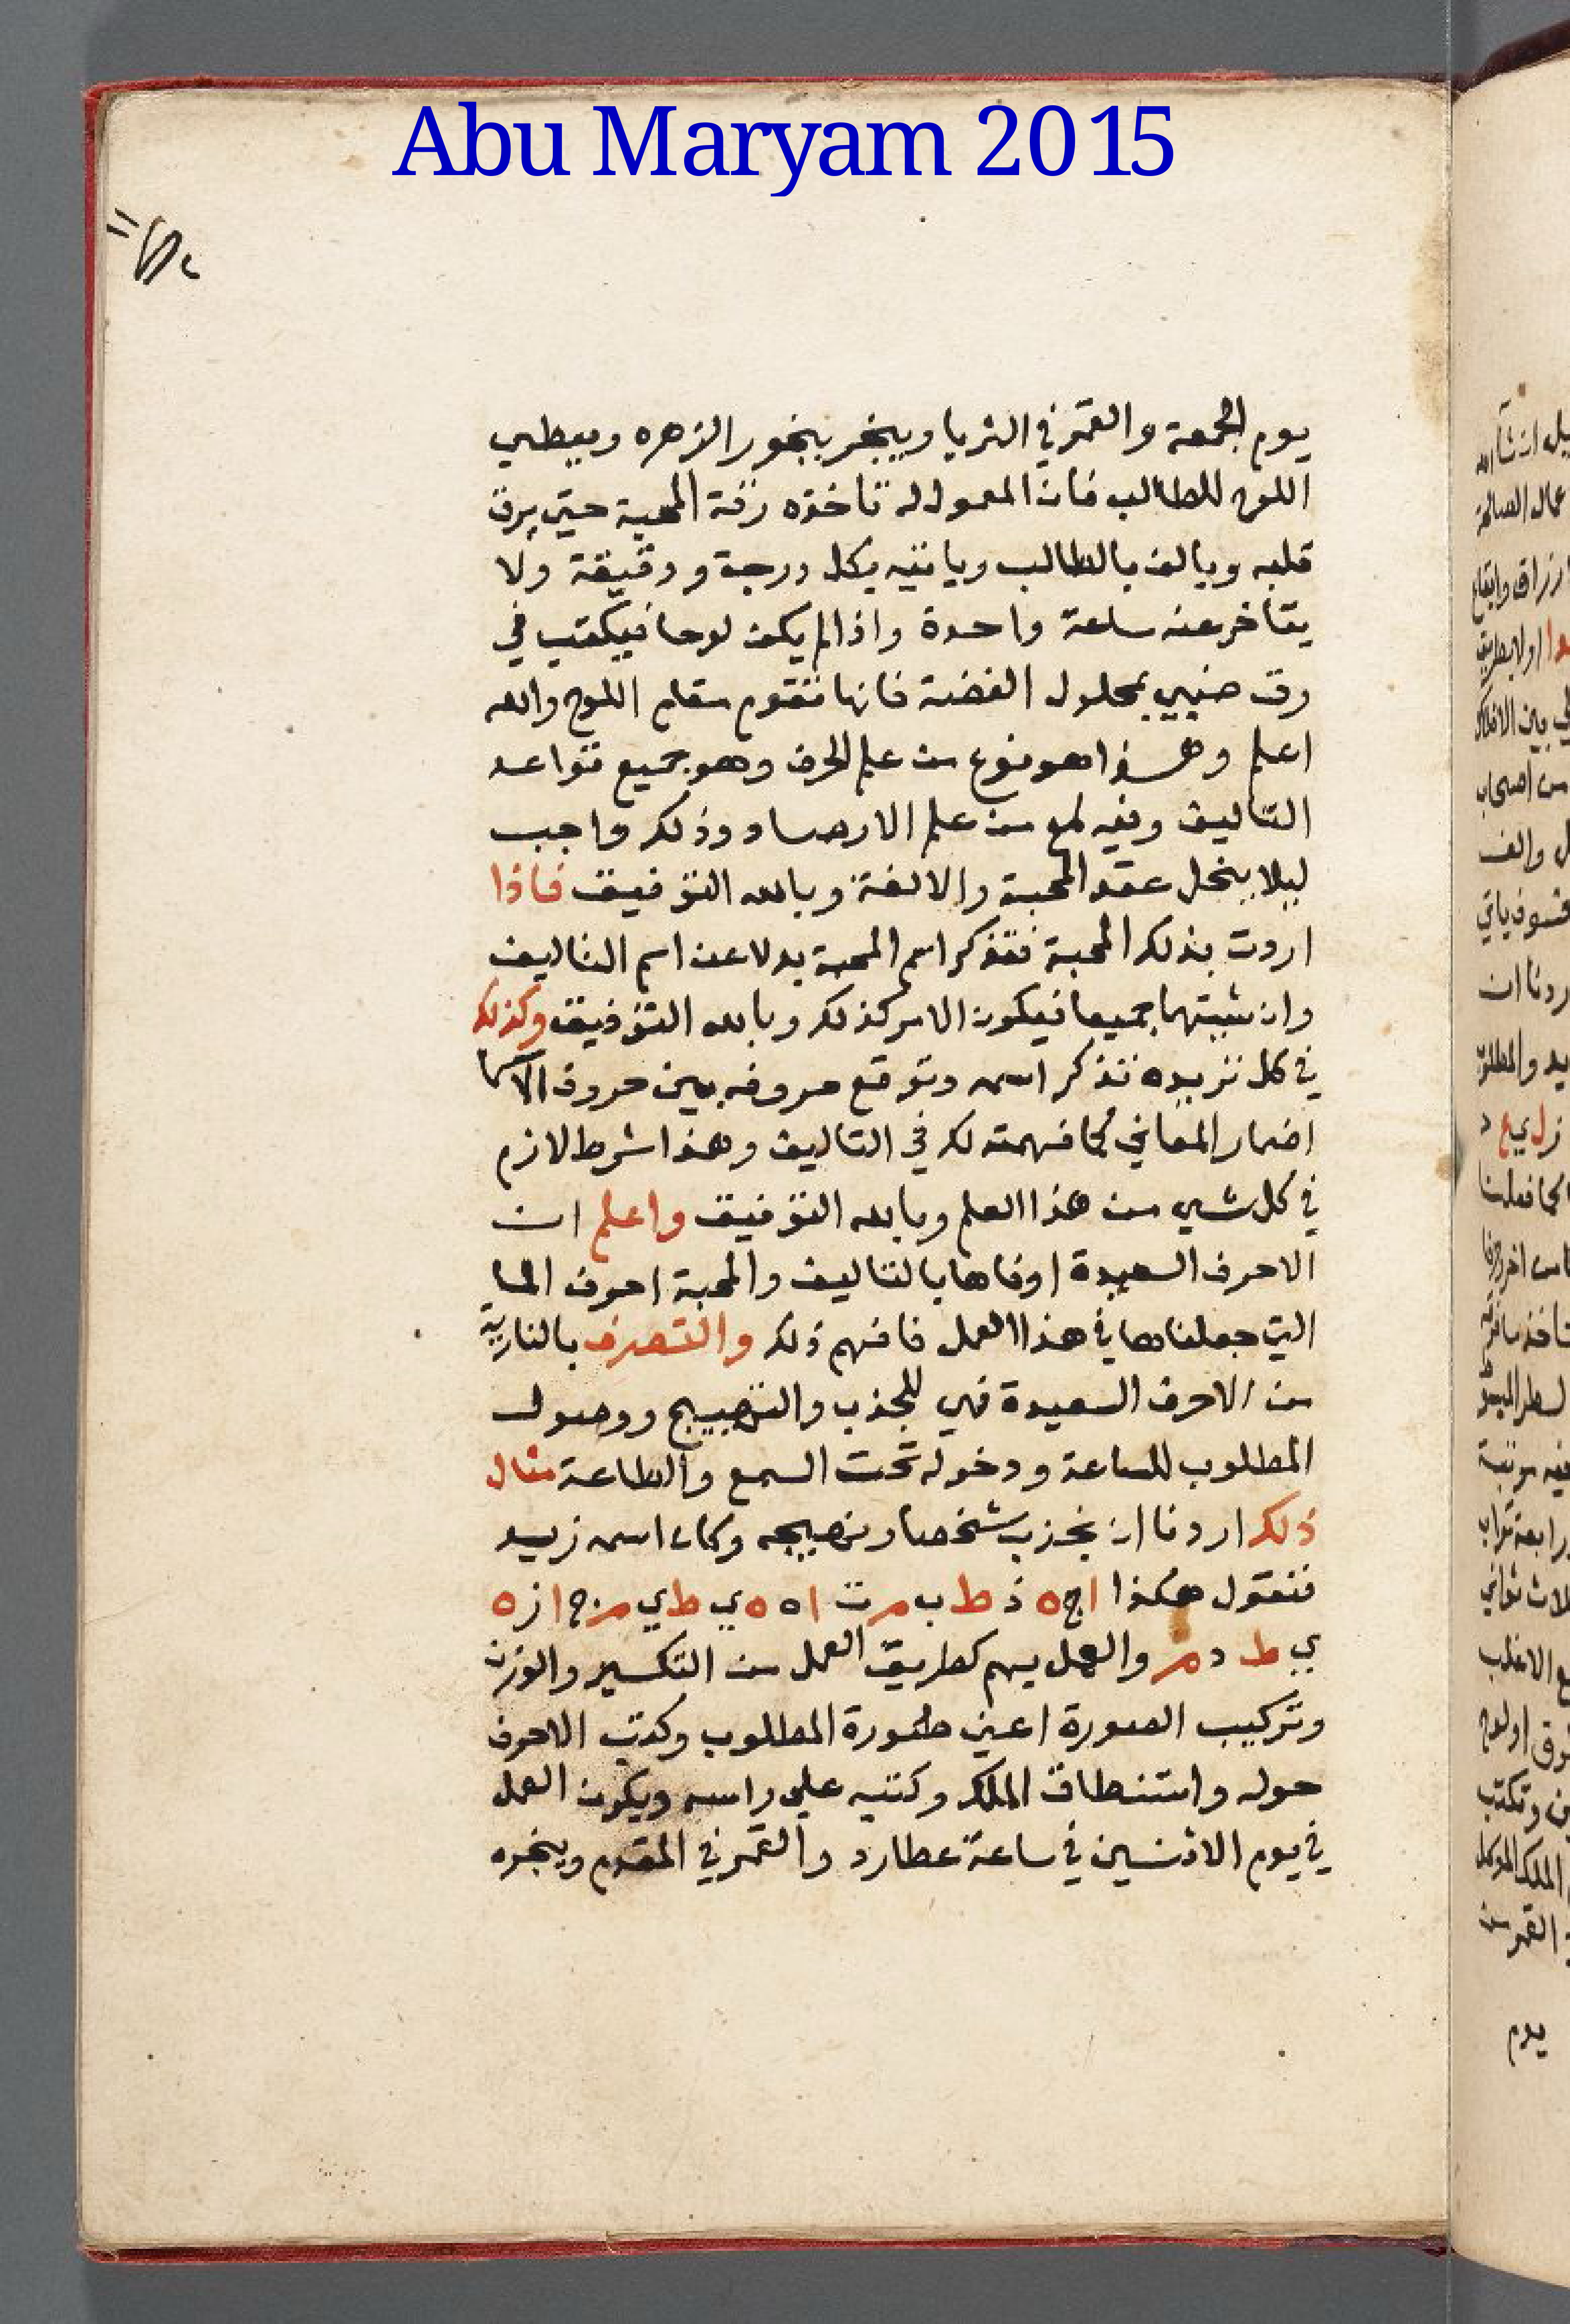 Abu Maryam 2015
يوم الجمعة والقمر في الثريا ويبخر ببخور الزهره ويعطي
اللوح للطالب فان المعمول له تاخذه رقة المحبة حتي يرق
قلبه ويالف بالطالب وياتيه بكل درجة ودقيقة ولا
يتاخر عنه ساعة واحدة واذا لم يكن لوحا فيكتب في
رق ضبي بمحلول الفضة فانها تقوم مقام اللوح والله
اعلم وهذا هو نوع من علم الحرف وهو جميع قواعد
التاليف وفيه لمع من علم الارصاد وذلك واجب
ليلا ينحل عقد المحبة والالفة وبالله التوفيق فاذا
اردت بذلك المحبة فتذكر اسم المحبة بدلا عن اسم التاليف
وان شيتهما جميعا فيكون الامر كذلك وبالله التوفيق وكذلك
في كل تريده تذكر اسمه وتوقع حروفه بين حروف الاسما
اضمار المعاني كما فهمته لك في التاليف وهذا شرط لازم
في كل شي من هذا العلم وبالله التوفيق واعلم ان
الاحرف السعيدة اوفاها بالتاليف والمحبة احرف الما
التي جعلناها في هذا العمل فافهم ذلك والتصرف بالنارية
من الاحرف السعيدة فهي للجذب والتهييج ووصول
المطلوب للساعة ودخوله تحت السمع والطاعة مثال
ذلك اردنا ان نجذب شخصا ونهيجه وكان اسمه زيد
فنقول هكذا ا ج ه ذ ط ب م ت ا ه ه ي ط ي م ج ا ز ه
ي ط د م والعمل بهم كطريق العمل من التكسير والوزن
وتركيب الصورة اعني صورة المطلوب وكتب الاحرف
حوله واستنطاق الملك وكتبه علي راسه ويكون العمل
في يوم الاثنين في ساعة عطارد والقمر في المقدم وبخره